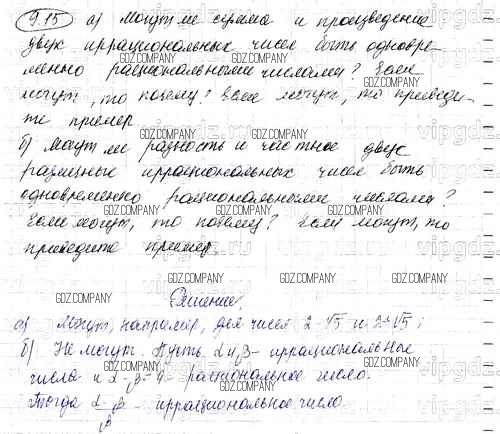 9.15 а) Могут ли сумма и произведение
двух иррациональных чисел быть одновре-
менно рациональными числами? Если
могут, то почему? Если могут, то приведи-
те пример
б) Могут ли разность и частное двух
различных иррациональных чисел быть
одновременно рациональными числами?
Если могут, то почему? Если могут, то
приведите пример.
Решение.
а) Могут, например, для чисел 2-√5 и 2+√5;
б) Не могут. Пусть α и β - иррациональные
числа и α - β = - рациональное число.
Тогда α/β - иррациональное число.
GDZ.COMPANY
vipgdz